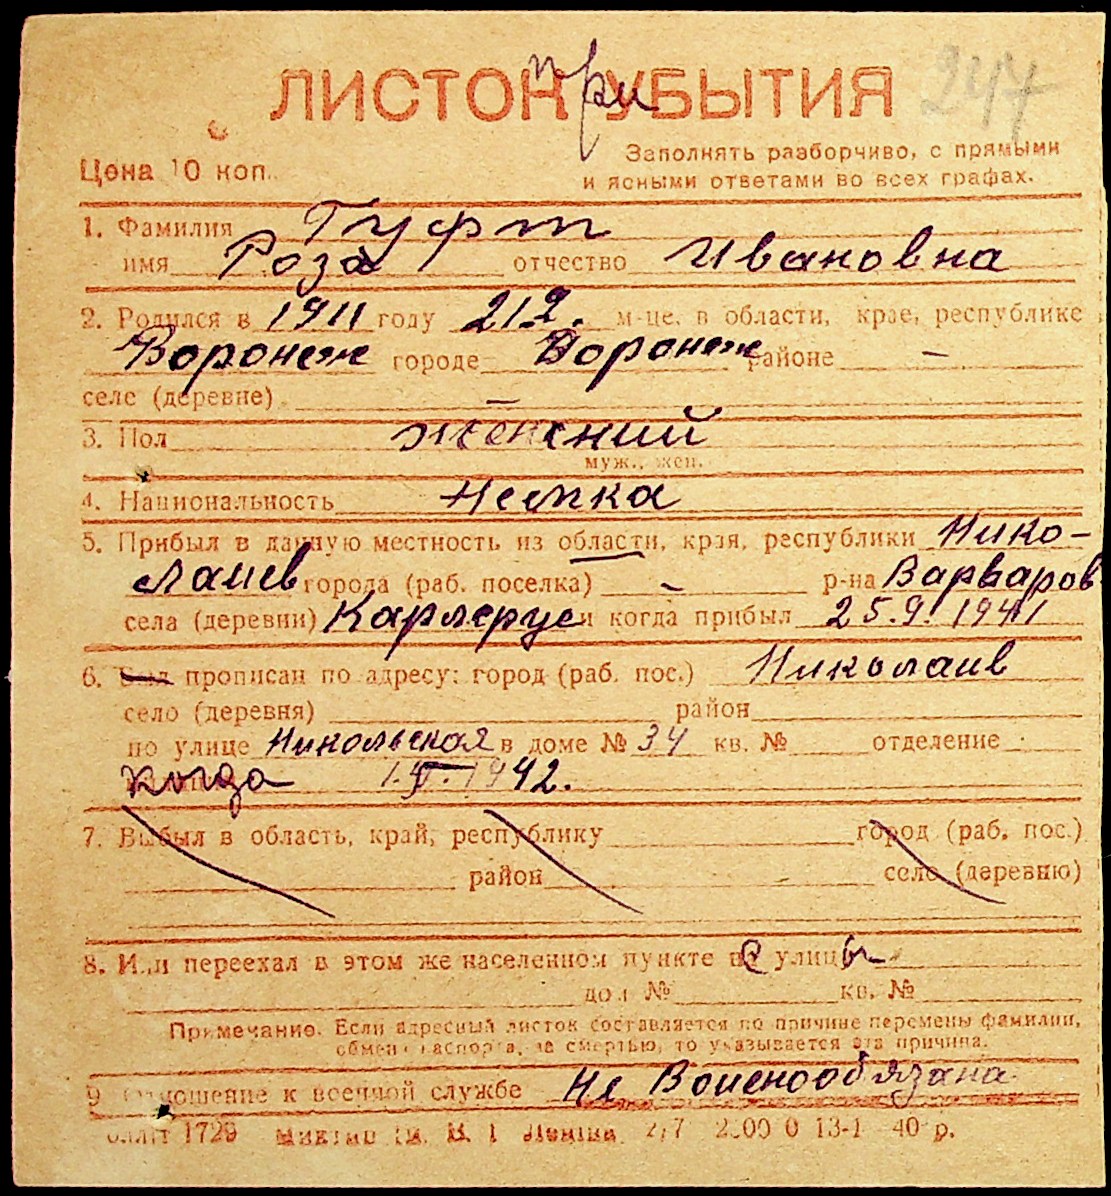 ЛИСТОК при УБЫТИЯ 247
Цена 10 коп.
Заполнять разборчиво, с прямыми
и ясными ответами во всех графах.
1. Фамилия Гуфт
имя Роза отчество Ивановна
2. Родился в 1911 году 21 2. м-це, в области, крае, республике
Воронеж городе Воронеж районе —
селе (деревне) —
3. Пол женский
муж., жен.
4. Национальность Немка
5. Прибыл в данную местность из области, края, республики Нико-
лаев города (раб. поселка) – р-на Варваров
села (деревни) Карлсруе и когда прибыл 25.9. 1941
6. Был прописан по адресу: город (раб. пос.) Николаив
село (деревня) район
по улице Никольская в доме № 34 кв. № отделение
Когда 1.V.1942.
7. Выбыл в область, край, республику город (раб. пос.)
район село (деревню)
8. Или переехал в этом же населенном пункте с улицы
дом № кв. №
Примечание. Если адресный листок составляется по причине перемены фамилии,
обмена паспорта, за смертью, то указывается эта причина.
9. Отношение к военной службе Не Воиенообязана
1729 им. В. И. Ленина 13-1 40 р.